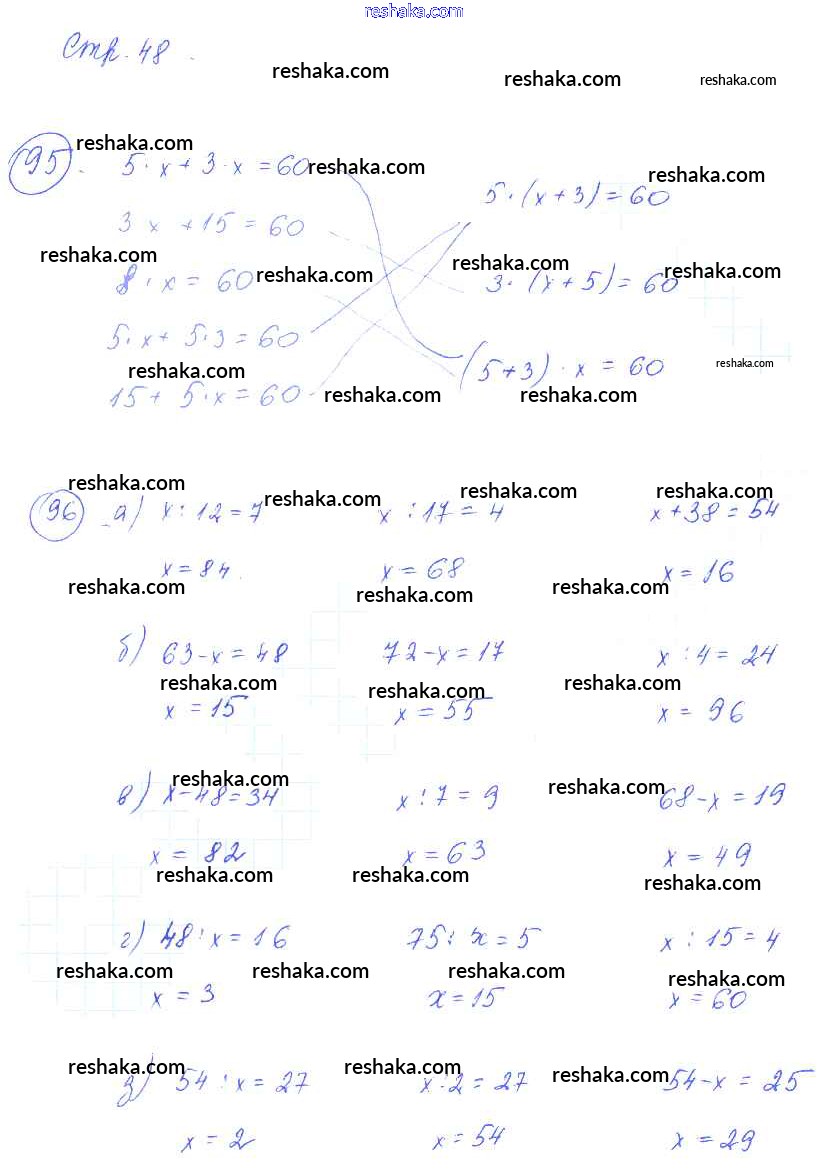 reshaka.com
Стр. 48.
reshaka.com reshaka.com reshaka.com
reshaka.com
95. 5·x+3·x=60 reshaka.com reshaka.com
5·(x+3)=60
3·x+15=60
reshaka.com reshaka.com reshaka.com reshaka.com
8·x=60 3·(x+5)=60
5·x+5·3=60
reshaka.com (5+3)·x=60 reshaka.com
15+5·x=60 reshaka.com reshaka.com
reshaka.com reshaka.com reshaka.com reshaka.com
96 а) x:12=7 x:17=4 x+38=54
x=84. x=68 x=16
reshaka.com reshaka.com reshaka.com
б) 63-x=48 72-x=17 x:4=24
reshaka.com reshaka.com reshaka.com
x=15 x=55 x=96
reshaka.com reshaka.com
в) x-48=34 x:7=9 68-x=19
x=82 x=63 x=49
reshaka.com reshaka.com reshaka.com
г) 48:x=16 75:x=5 x:15=4
reshaka.com reshaka.com reshaka.com reshaka.com
x=3 x=15 x=60
reshaka.com reshaka.com reshaka.com
д) 54:x=27 x:2=27 54-x=25
x=2 x=54 x=29